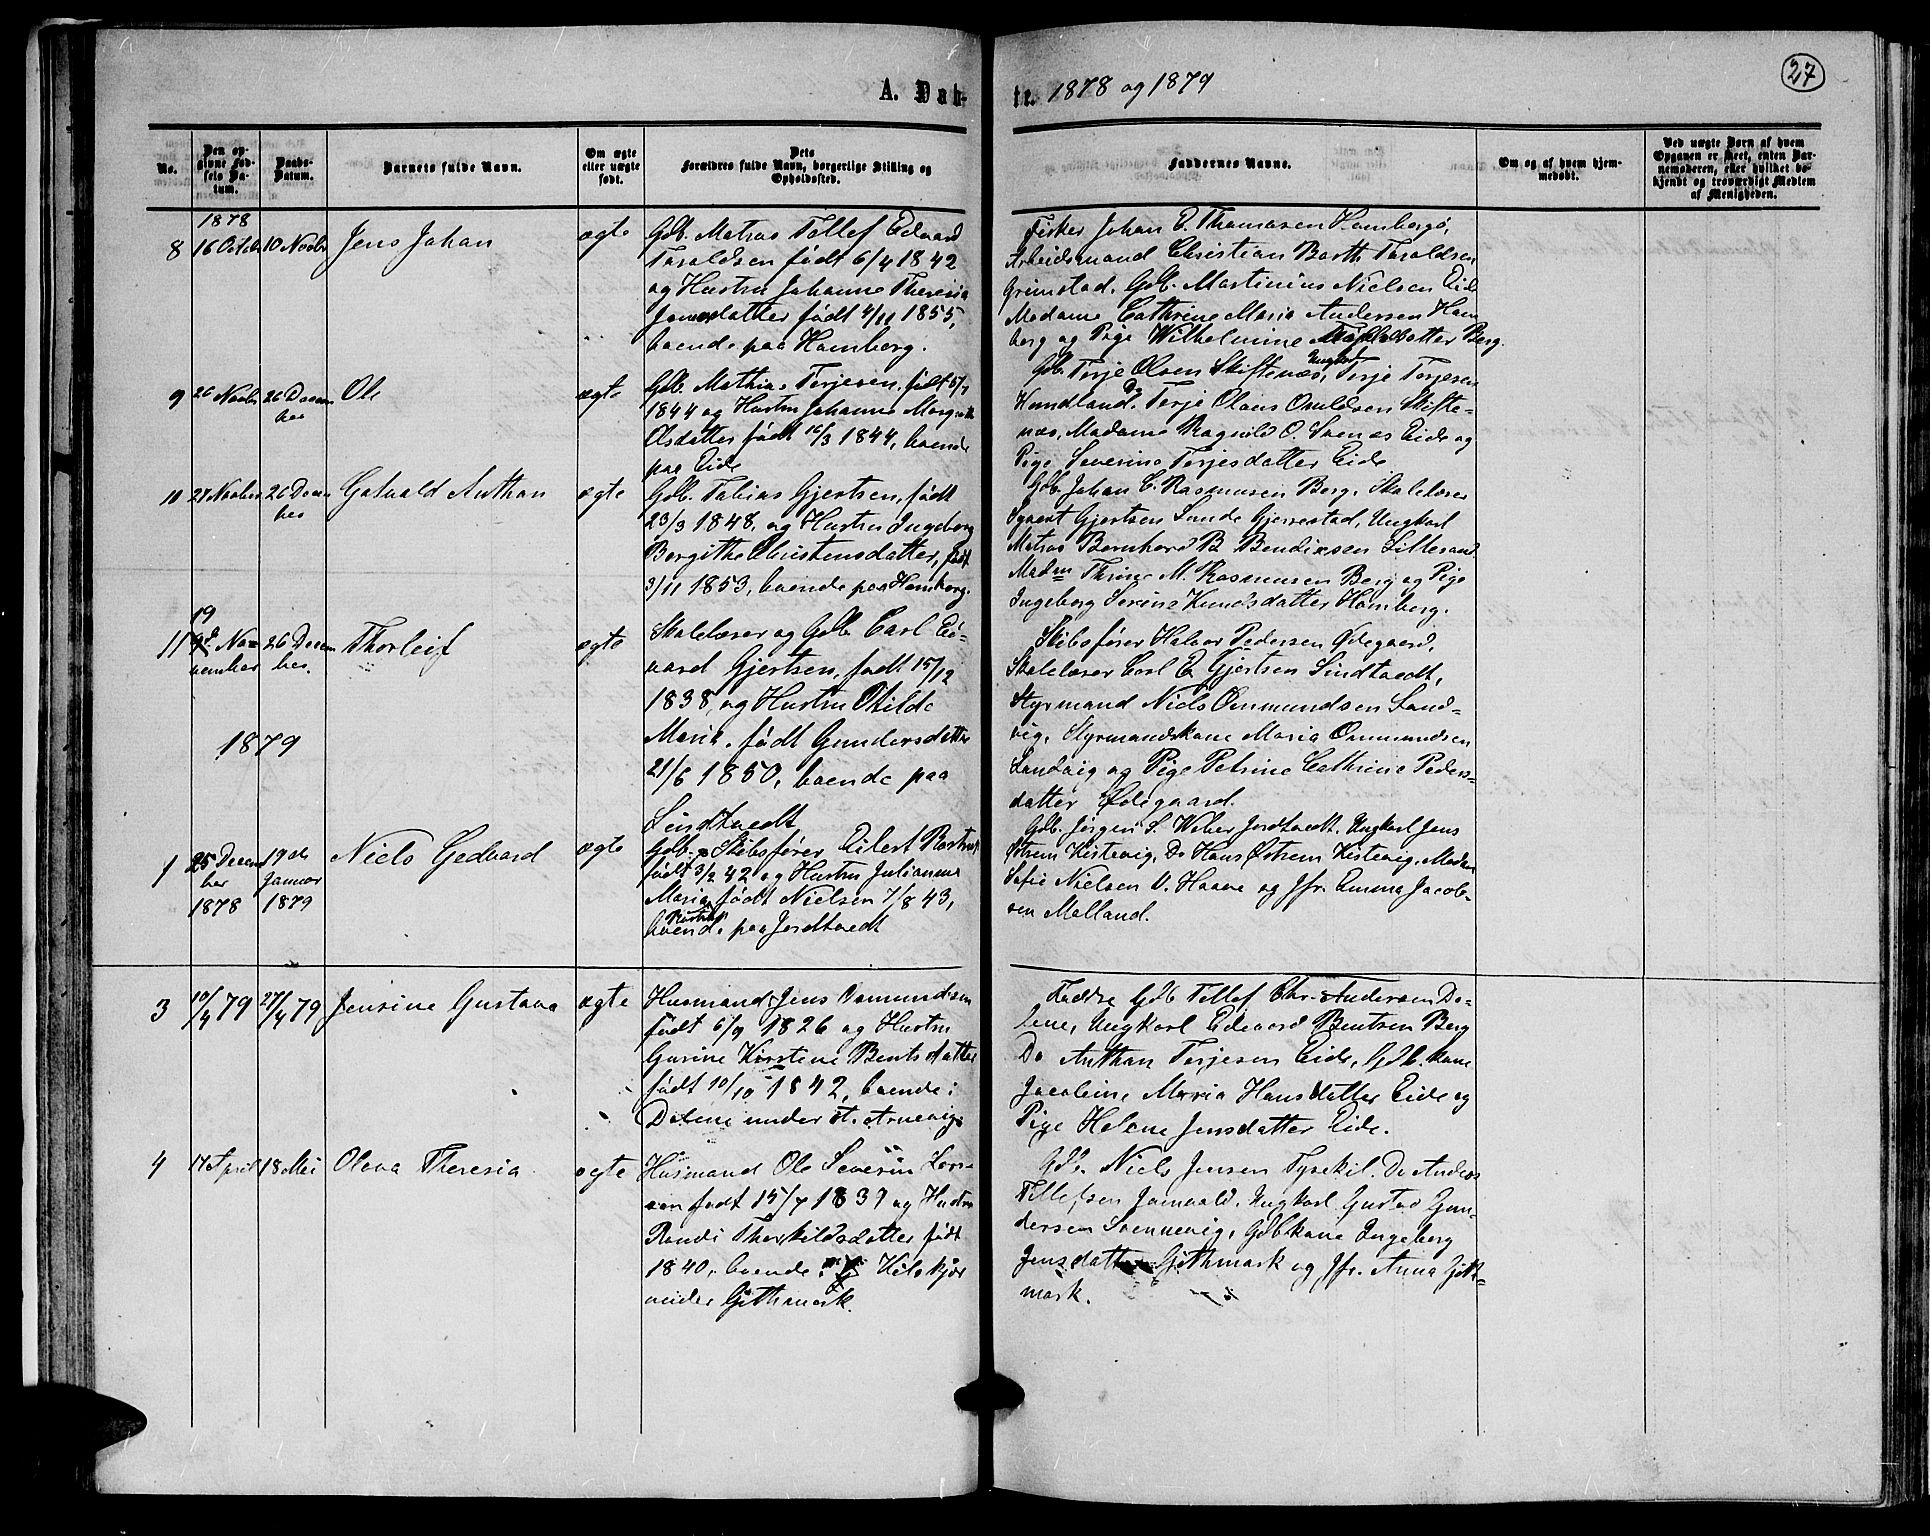 27
A. Døb- te. 1878 og 1879
No.
Den opgivne Fødsels Datum.
Daabs-Datum.
Barnets fulde Navn.
Om ægte eller uægte født.
Dets Forældres fulde Navn, borgerlige Stilling og Opholdssted.
Faddernes Navne.
Om og af hvem hjemmedøbt.
Ved uægte Børn af hvem Opgaven er skeet, enten Barnemoderen, eller hvilket bekjendt og troværdigt Medlem af Menigheden.
1878
8 16 Octob 10 Novbr Jens Johan ægte
Gdb. Matros Tellef Edvard
Taraldsen født 6/4 1842
og Hustru Johanne Theresia
Jensdatter født 4/11 1855,
boende paa Homborg.
Fisker Johan E. Thomasen Homborgø,
Arbeidsmand Christian Barth Taraldsen
Grimstad. Gdb. Martinius Nielsen Eide
Madame Cathrine Maria Andersen Hom
borg og Pige Wilhelmine datter Berg.
9 26 Novbr 26 Decem
ber
Ole ægte
Gdb. Mathias Terjesen, født 5/7
1844 og Hustru Johanne Margrethe
Olsdatter født 16/3 1844, boende
paa Eide
Gdb. Terje Olsen Skiftenæs, Ungkarl Terje Terjesen
Hundland. Do Terje Olaus Omuldsen Skifte-
næs, Madame Ragnild O. Svenes Eide og
Pige Severine Terjesdatter Eide
10 27 Novber 26 Decem
ber
Gotvald Anthon ægte
Gdb. Tobias Gjertsen, født
23/3 1848, og Hustru Ingeborg
Bergithe Christensdatter, født
3/11 1853, boende paa Homborg.
Gdb. Johan C. Rasmusen Berg. Skolelærer
Syvert Gjertsen Sunde Gjerrestad, Ungkarl
Matros Bernhard B. Bendixsen Lillesand
Madm Thrine M. Rasmusen Berg og Pige
Ingeborg Serine Knudsdatter Homborg.
19
11 9d No-
vember
26 Decem
ber.
Thorleif ægte
Skolelærer og Gdb. Carl Ed-
vard Gjertsen, født 15/12
1838, og Hustru Otilde
Maria, født Gundersdatter
21/6 1850, boende paa
Sindtvedt
Skibsfører Halvor Pedersen Ødegaard,
Skolelærer Carl E. Gjertsen Sindtvedt,
Styrmand Niels Ommundsen Land-
vig, Styrmandskone Maria Ommundsen
Landvig og Pige Petrine Cathrine Peders-
datter Ødegaard.
1879
1 25 Decem
ber
1878
19de
Januar
1879
Niels Gedvard ægte
Gdb. Skibsfører Eilert Rostrup
født 3/2 42 og Hustru Julianne
Maria født Nielsen 7/8 43,
Rostrup
boende paa Jordtvedt
Gdb. Jørgen S. Weber Jordtvedt. Ungkarl Jens
Østrem Kistevig, Do Hans Østrem Kistevig. Madam
Sofie Nielsen V. Haave og Jfr. Emma Jacob-
sen Molland.
3 10/4 79 27/4 79 Jensine Gustava ægte
Husmand Jens Osmundsen
født 6/9 1826 og Hustru
Gurine Kirstine Bentsdatter
født 10/10 1842, boende i
Dalene under St. Arnevig.
Faddre Gdb Tellef Chr. Andersen Da-
lene, Ungkarl Edevard Bentsen Berg
Do Anthon Terjesen Eide, Gdb. kone
Jacobine Maria Hansdatter Eide og
Pige Helene Jensdatter Eide.
4 17 April 18 Mei Olava Theresia ægte
Husmand Ole Severin Lars-
sen født 15/7 1837 og Hustru
Randi Thorkildsdatter født
1840, boende Kileskjær
under Githmark.
Gdb. Niels Jensen Tysekil. Do Anders
Tellefsen Jomvold. Ungkarl Gustav Gun-
dersen Svennevig, Gdbkone Ingeborg
Jensdatter Githmark og Jfr. Anna Gith-
mark.